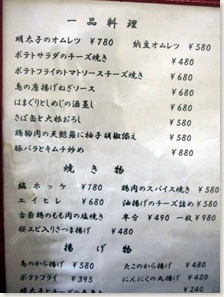 一品料理
明太子のオムレツ ¥780 納豆オムレツ ¥580
ポテトサラダのチーズ焼き ¥480
ポテトフライのトマトソースチーズ焼き ¥680
鳥の唐揚げねぎソース ¥680
はまぐりとしめじの酒蒸し ¥680
さば缶と大根おろし ¥580
鶏胸肉の天麩羅に柚子胡椒添え ¥580
豚バラとキムチ炒め ¥880
焼き物
縞ホッケ ¥780 鶏肉のスパイス焼き ¥580
エイヒレ ¥680 油揚げのチーズ詰め ¥580
古白鶏のもも肉の塩焼き 半分 ¥490 一枚 ¥980
桜エビ入りさつま揚げ ¥480
揚げ物
鳥のから揚げ ¥580 たこのから揚げ ¥480
ポテトフライ ¥395 にんにくの丸揚げ ¥420